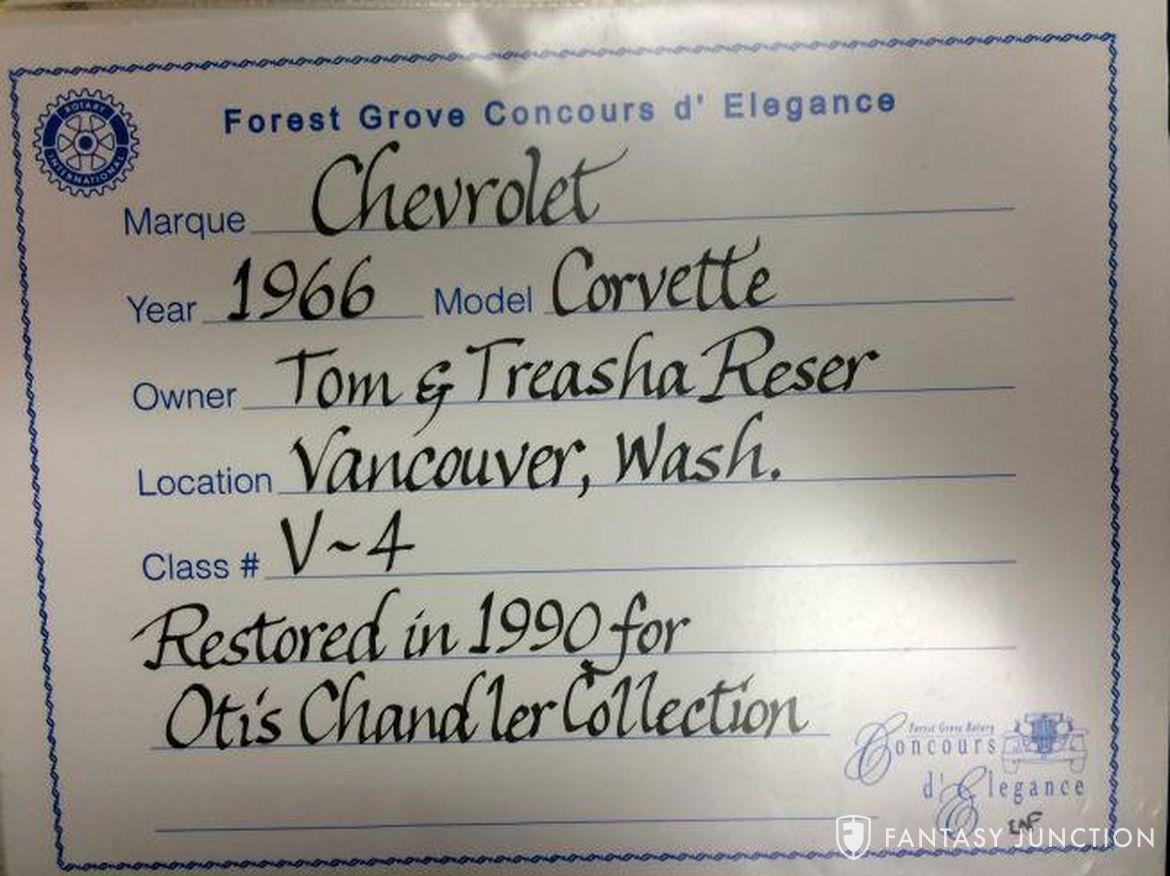 Forest Grove Concours d' Elegance
ROTARY INTERNATIONAL
Marque Chevrolet
Year 1966 Model Corvette
Owner Tom & Treasha Reser
Location Vancouver, Wash.
Class # V~4
Restored in 1990 for
Otis Chandler Collection
Forest Grove Rotary
Concours
d' Elegance
FANTASY JUNCTION